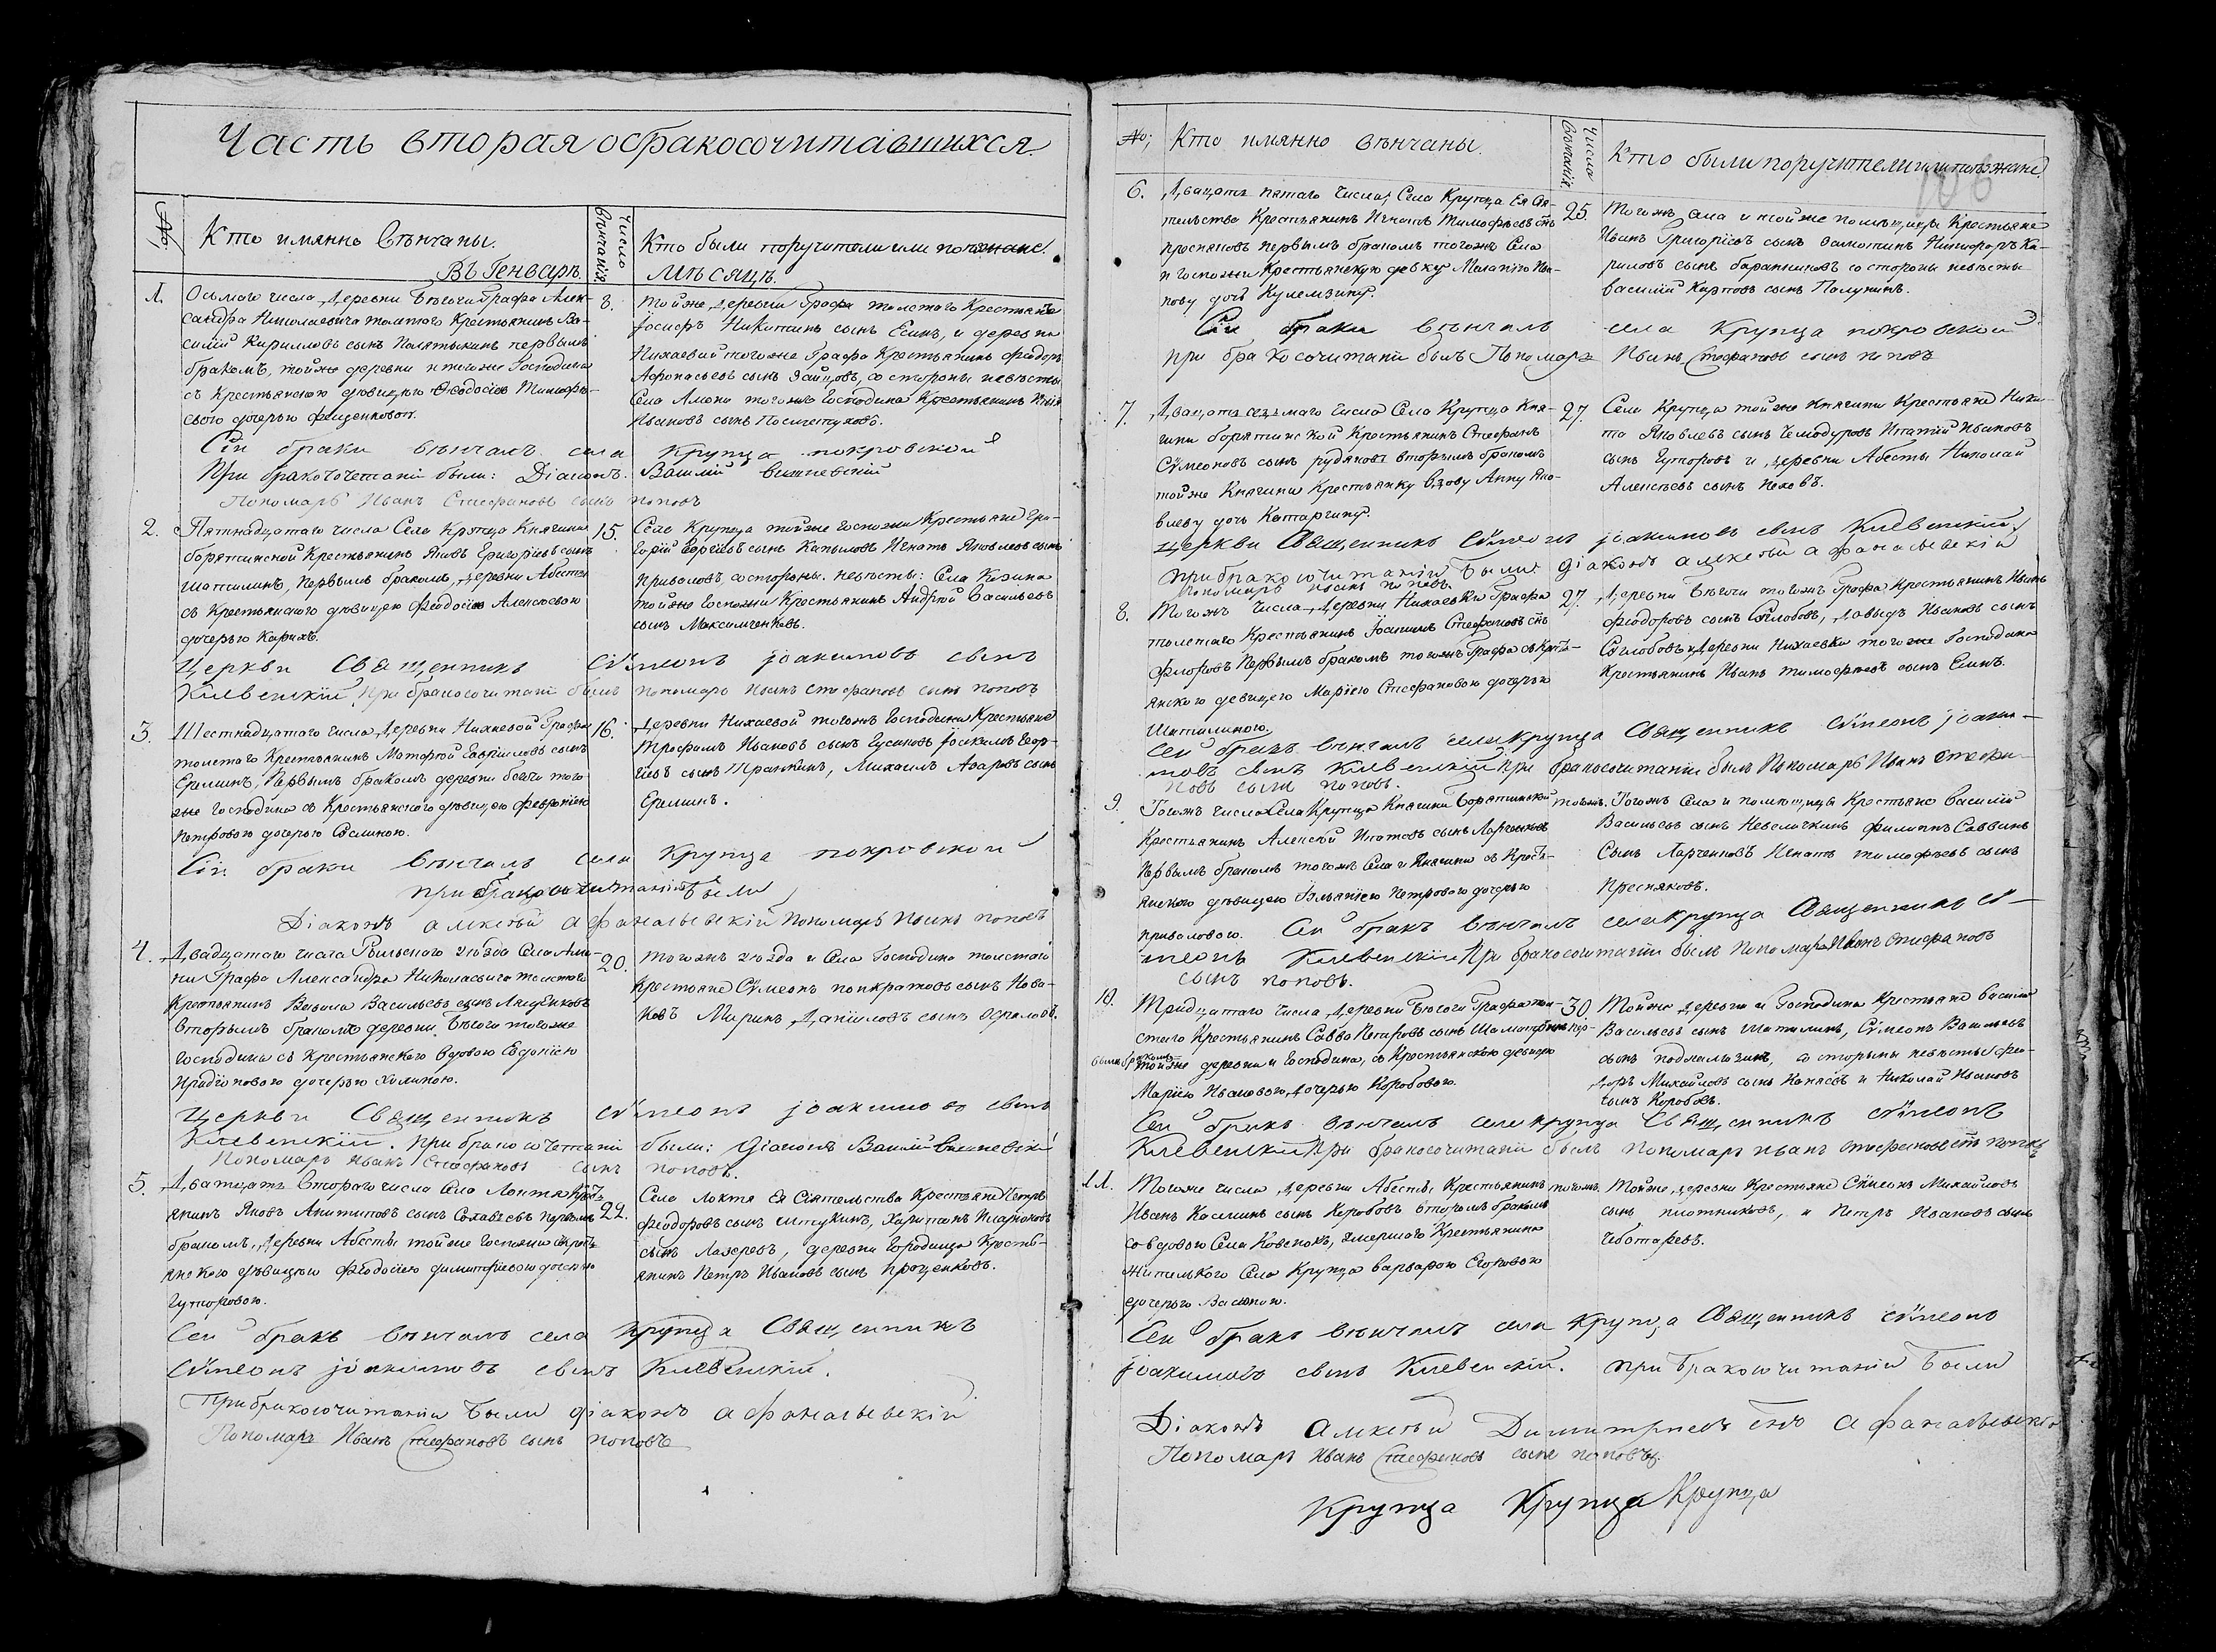 Часть вторая о бракосочитавшихся.
№; Кто имянно вѣнчаны. Число вѣнчанія Кто были поручители или поѣзжане.
Въ Генварѣ Мѣсяцѣ.
1. Осьмаго числа, Деревни Бѣгочи Графа Алек- 8.
сандра Николаевича толстого Крестьянинъ Ва-
силий Кирилловъ сынъ Полятыкинъ первымъ
бракомъ, тойже деревни и тогоже Господина
съ Крестьянскою дѣвицею Феодосіею Тимофѣ-
евою дочерью
тойже, деревни Графа толстаго Крестьяне
Іосифъ Никитинъ сынъ Есинъ, и деревни
Нихаевки тогоже Графа Крестьянинъ Феодоръ
Афонасьевъ сынъ Зайцовъ, со стороны невѣсты
Села Амони тогожъ Господина Крестьянинъ
Ивановъ сынъ
Сіи браки вѣнчалъ села Крупца покровской
При бракосочетаніи были: Діаконъ Василій Вишневскій
Пономарь Иванъ Стефановъ сынъ поповъ
2. Пятнадцатаго числа Села Крупца Княгини 15.
борятинской Крестьянинъ Яковъ Григорьевъ сынъ
Шатилинъ, первымъ бракомъ, деревни Абесты
съ Крестьянскою дѣвицею Феодосіею Алексѣевою
дочерью
Села Крупца тойже Госпожи Крестьяне Гри-
горій сынъ Капыловъ Игнатъ Яковлевъ сынъ
Приваловъ, со стороны невѣсты: Села Козина
тойже Госпожи Крестьянинъ Андрей Васильевъ
сынъ Максимченковъ.
Церкви Священникъ Сѵмеонъ Іоакимовъ сынъ
Киевенскій. При бракосочитаніи былъ пономарь Иванъ Стефановъ сынъ поповъ
3. Шестнадцатаго числа, Деревни Нихаевой Графа 16.
толстаго Крестьянинъ сынъ
Ерилинъ, Первымъ бракомъ деревни бегочи того-
же Господина съ Крестьянскою дѣвицею Февроніею
Петровою дочерью
Деревни Нихаевой тогожъ Господина Крестьяне
Трофимъ Ивановъ сынъ Гусиновъ Іоакимъ Геор-
гіевъ сынъ Михаилъ Азаровъ сынъ
Ерилинъ.
Сіи браки вѣнчалъ села Крупца покровской
При бракосочитаніи были
Діаконъ алексѣй афанасьевскій Пономарь Иванъ поповъ
4. Двадцатаго числа Рыльскаго уѣзда Села Амо- 20.
ни Графа Александра Николаевича толстого
Крестьянинъ Васильевъ сынъ
вторымъ бракомъ деревни, Бѣгочи тогоже
Господина съ Крестьянскою вдовою Евдокіею
дочерью
тогожъ уѣзда и Села Господина толстого
Крестьяне Сѵмеонъ панкратовъ сынъ Нова-
ковъ Даніиловъ сынъ
Церкви Священникъ Сѵмеонъ Іоакимовъ сынъ
Киевенскій. При бракосочетаніи были: Діаконъ Василій Вишневскій
Пономарь Иванъ Стефановъ сынъ поповъ.
5. Двадцать втораго числа Села Локтя Крестья- 22.
янинъ Яковъ Антиповъ сынъ первымъ
бракомъ, Деревни Абесты тойже Госпожи съ Кресть-
янскою дѣвицею Феодосіею Димитріевою дочерью
Гуторовою.
Села Локтя Ея Сіятельства Крестьяне Петръ
Феодоровъ сынъ Харитонъ Иларіоновъ
сынъ Лазаревъ, деревни Городища Кресть-
янинъ Петръ Ивановъ сынъ Проценковъ.
Сей бракъ вѣнчалъ села Крупца Священникъ
Сѵмеонъ Іоакимовъ сынъ Киевенскій.
При бракосочитаніи были діаконъ афанасьевскій
Пономарь Иванъ Стефановъ сынъ поповъ
№; Кто имянно вѣнчаны. Число вѣнчанія Кто были поручители или поѣзжане.
6. Двадцать пятаго числа, Села Крупца Ея Сія- 25.
тельства Крестьянинъ Игнатъ Тимофѣевъ снъ
пресняковъ первымъ бракомъ тогожъ Села
и Госпожи Крестьянскую девку Маланію Ива-
нову дочь Кулемзину.
Тогожъ села и тойже помѣщицы Крестьяне
Иванъ Григоріевъ сынъ Никифоръ Ка-
риловъ сынъ баранниковъ со стороны невѣсты
Василій Карповъ сынъ Полунинъ.
Сіи браки вѣнчалъ села Крупца покровской
при бракосочитаніи былъ Пономарь Иванъ Стефановъ сынъ поповъ
7. Двадцать седьмаго числа Села Крупца Кня- 27.
гини борятинской Крестьянинъ Стефанъ
Сѵмеоновъ сынъ рудяковъ вторымъ бракомъ
тойже Княгини Крестьянку вдову Анну Яко-
влеву дочь Катаргину.
Села Крупца тойже Княгини Крестьяне Ники-
та Яковлевъ сынъ Чемодуровъ Игнатій Ивановъ
сынъ Гуторовъ и, деревни Абесты Николай
Алексѣевъ сынъ
Церкви Священникъ Сѵмеонъ Іоакимовъ сынъ Киевенскій
при бракосочитаніи были діаконъ алексѣй афанасьевскій
Пономарь Иванъ поповъ.
8. Тогожъ числа, Деревни Нихаевки Графа 27.
толстаго Крестьянинъ Іоакимъ Стефановъ снъ
Флоровъ первымъ бракомъ тогожъ Графа съ Кресть-
янскою девицею Маріею Стефановою дочерью
Шатилиною.
Деревни Бѣгочи тогожъ Графа Крестьянинъ Иванъ
Феодоровъ сынъ Давыдъ Ивановъ сынъ
Деревни Нихаевки тогоже Господина
Крестьянинъ Иванъ тимофѣевъ сынъ Есинъ.
Сей бракъ вѣнчалъ села Крупца Священникъ Сѵмеонъ Іоаки-
мовъ сынъ Киевенскій при бракосочитаніи былъ Пономарь Иванъ Стефа-
новъ сынъ поповъ.
9. Тогожъ числа Села Крупца Княгини Борятинской тогожъ.
Крестьянинъ Алексѣй Игнатовъ сынъ Ларченковъ
первымъ бракомъ тогожъ Села и Княгини съ Кресть-
янскою дѣвицею Петровою дочерью
приваловою.
Тогожъ Села и помѣщицы Крестьяне Василій
Васильевъ сынъ Невеличкинъ Филипъ Саввинъ
Сынъ Ларченковъ Игнатъ тимофѣевъ сынъ
Пресняковъ.
Сей бракъ вѣнчалъ села Крупца Священникъ Сѵ-
меонъ Киевенскій При бракосочитаніи былъ пономарь Иванъ Стефановъ
сынъ поповъ.
10. Тридцатаго числа, Деревни Бѣгочи Графа тол- 30.
стаго Крестьянинъ Савва Петровъ сынъ пер-
вымъ бракомъ тойже деревни и Господина, съ Крестьянскою девицею
Маріею Ивановою, дочерью Коробовою.
Тойже деревни и Господина Крестьяне Василій
Васильевъ сынъ Шатилинъ, Сѵмеонъ Васильевъ
сынъ со стороны невѣсты Фео-
доръ Михайловъ сынъ и Николай Ивановъ
сынъ Коробовъ.
Сей бракъ вѣнчалъ села Крупца Священникъ Сѵмеонъ
Киевенскій При бракосочитаніи былъ пономарь Иванъ Стефановъ снъ поповъ
11. Тогоже числа, деревни Абесты, Крестьянинъ тогожъ.
Иванъ Косминъ сынъ Коробовъ вторымъ бракомъ
со вдовою Села умершаго Крестьянина
Села Крупца Варварою Егоровою
дочерью
Тойже, деревни Крестьяне Сѵмеонъ Михайловъ
сынъ плотниковъ, и Петръ Ивановъ сынъ
Чеботаревъ.
Сей бракъ вѣнчалъ села Крупца Священникъ Сѵмеонъ
Іоакимовъ сынъ Киевенскій. при бракосочитаніи были
Діаконъ Алексѣй Димитріевъ снъ афанасьевскій
Пономарь Иванъ Стефановъ сынъ поповъ.
Крупца Крупца Крупца